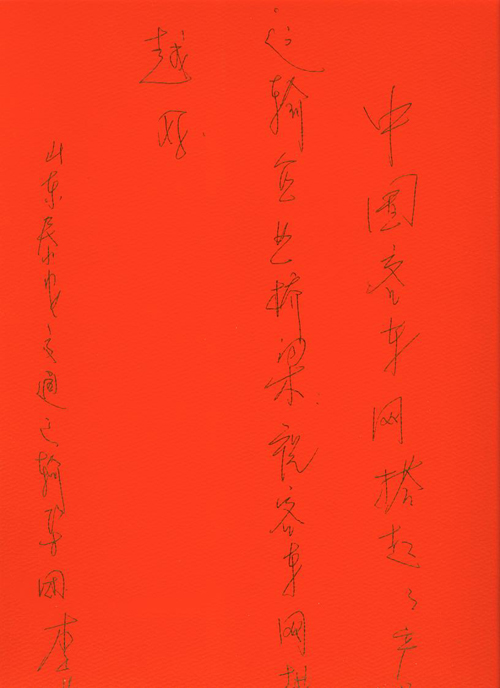 中国客车网搭起了
运输企业桥梁.祝客车网
越好.
山东泰安交通运输集团李